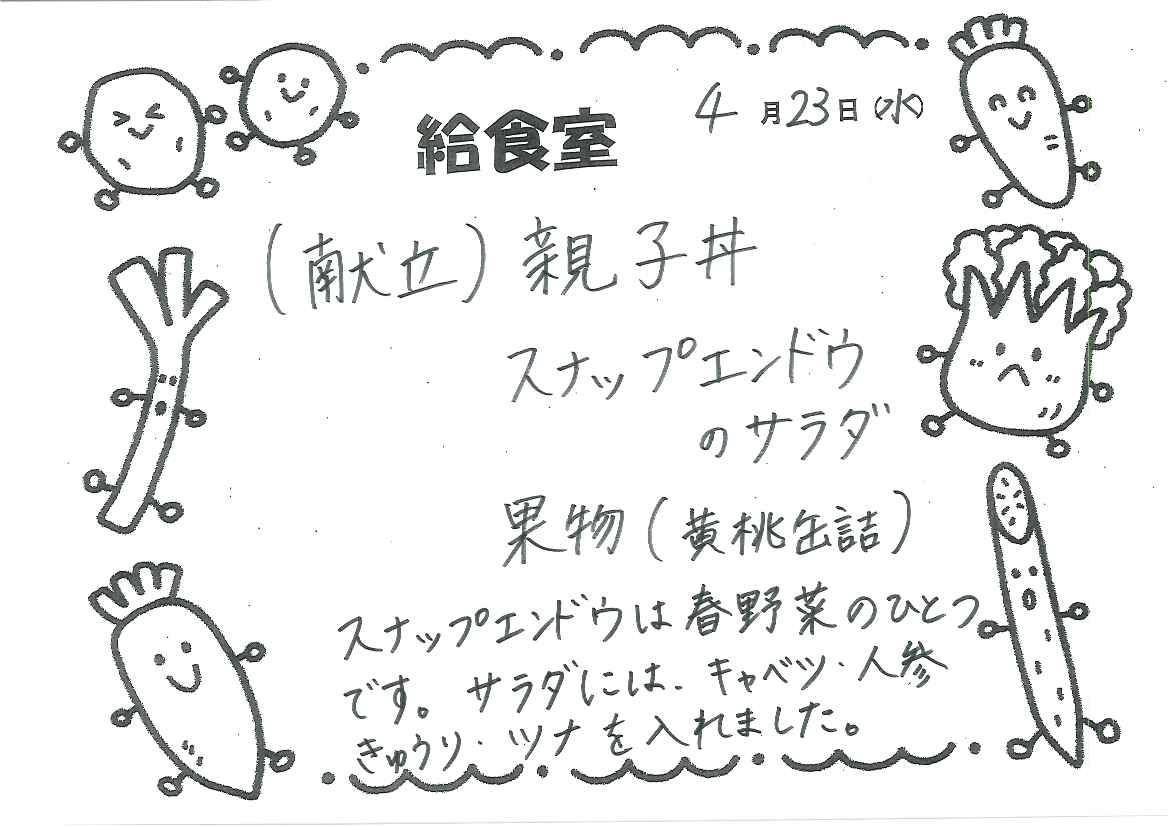 給食室
4月23日(水)
(献立)親子丼
スナップエンドウ
のサラダ
果物(黄桃缶詰)
スナップエンドウは春野菜のひとつ
です。サラダには、キャベツ・人参
きゅうり・ツナを入れました。